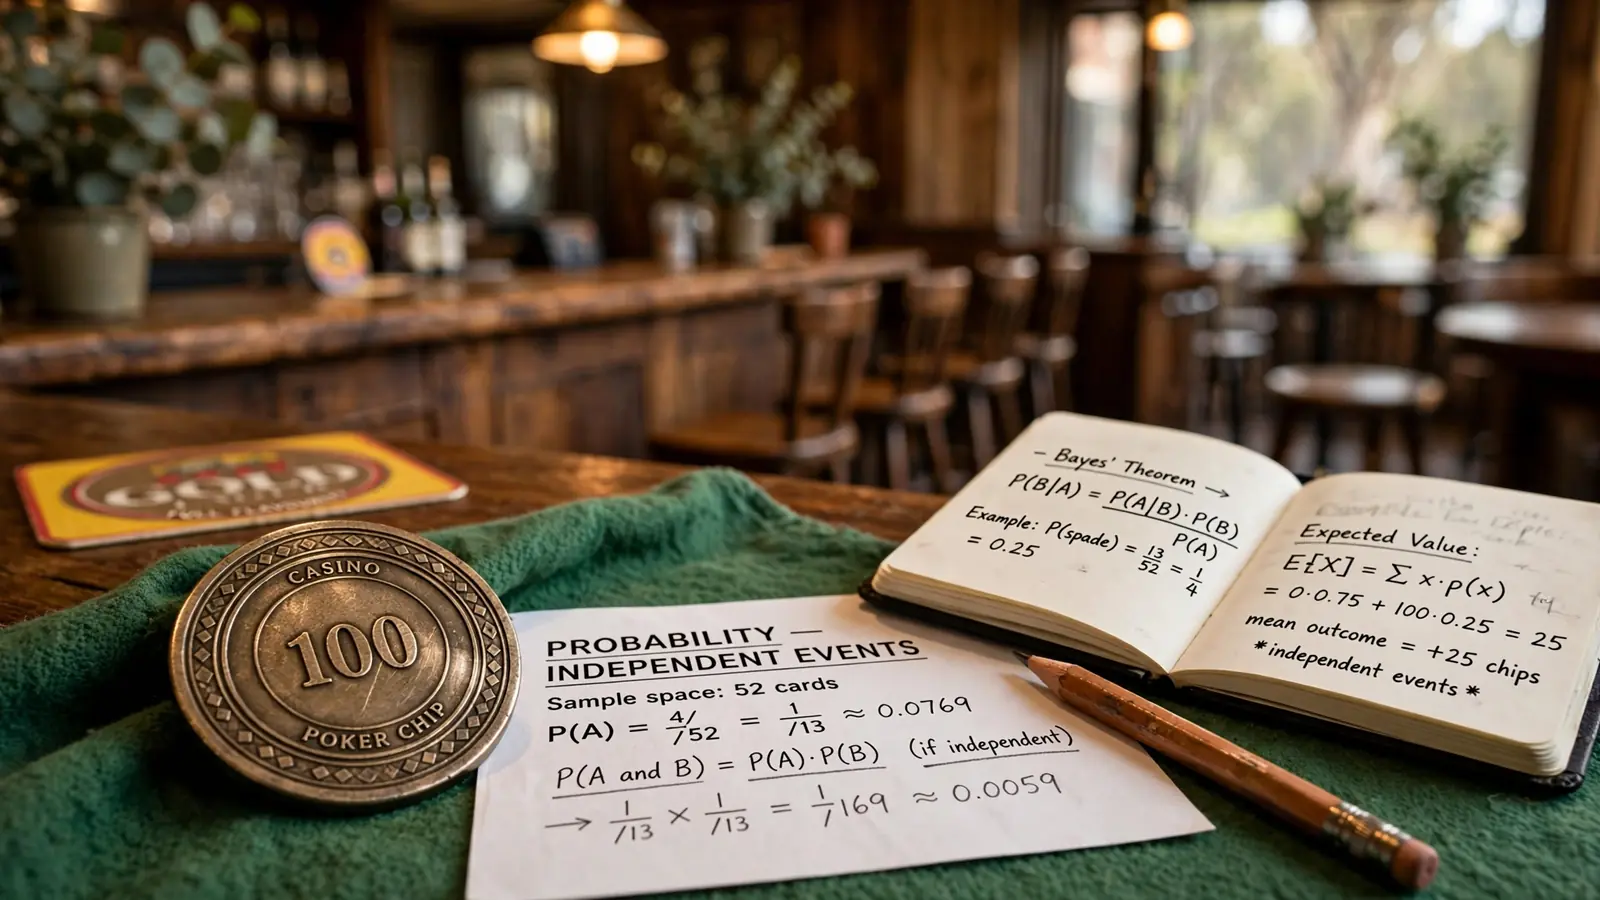 GOLD
CASINO
100
POKER CHIP
PROBABILITY —
INDEPENDENT EVENTS
Sample space: 52 cards
P(A) = 4/52 = 1/13 ≈ 0.0769
P(A and B) = P(A)·P(B) (if independent)
→ 1/13 × 1/13 = 1/169 ≈ 0.0059
– Bayes' Theorem →
P(B|A) = P(A|B)·P(B)
P(A)
Example: P(spade) = 13/52 = 1/4
= 0.25
Expected Value:
E[X] = ∑ x·p(x)
= 0·0.75 + 100·0.25 = 25
mean outcome = +25 chips
*independent events*